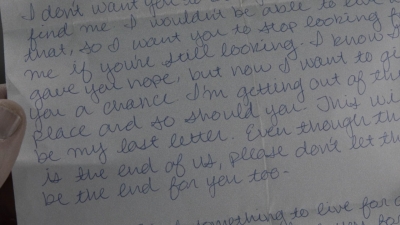 I don't want you to
find me I wouldn't be able to live
that, so I want you to stop looking f
me if you're still looking. I know I
gave you hope, but now I want to gi
you a chance I'm getting out of thi
place and so should you. This wi
be my last letter. Even though th
is the end of us, please don't let th
be the end for you too-
something to live for